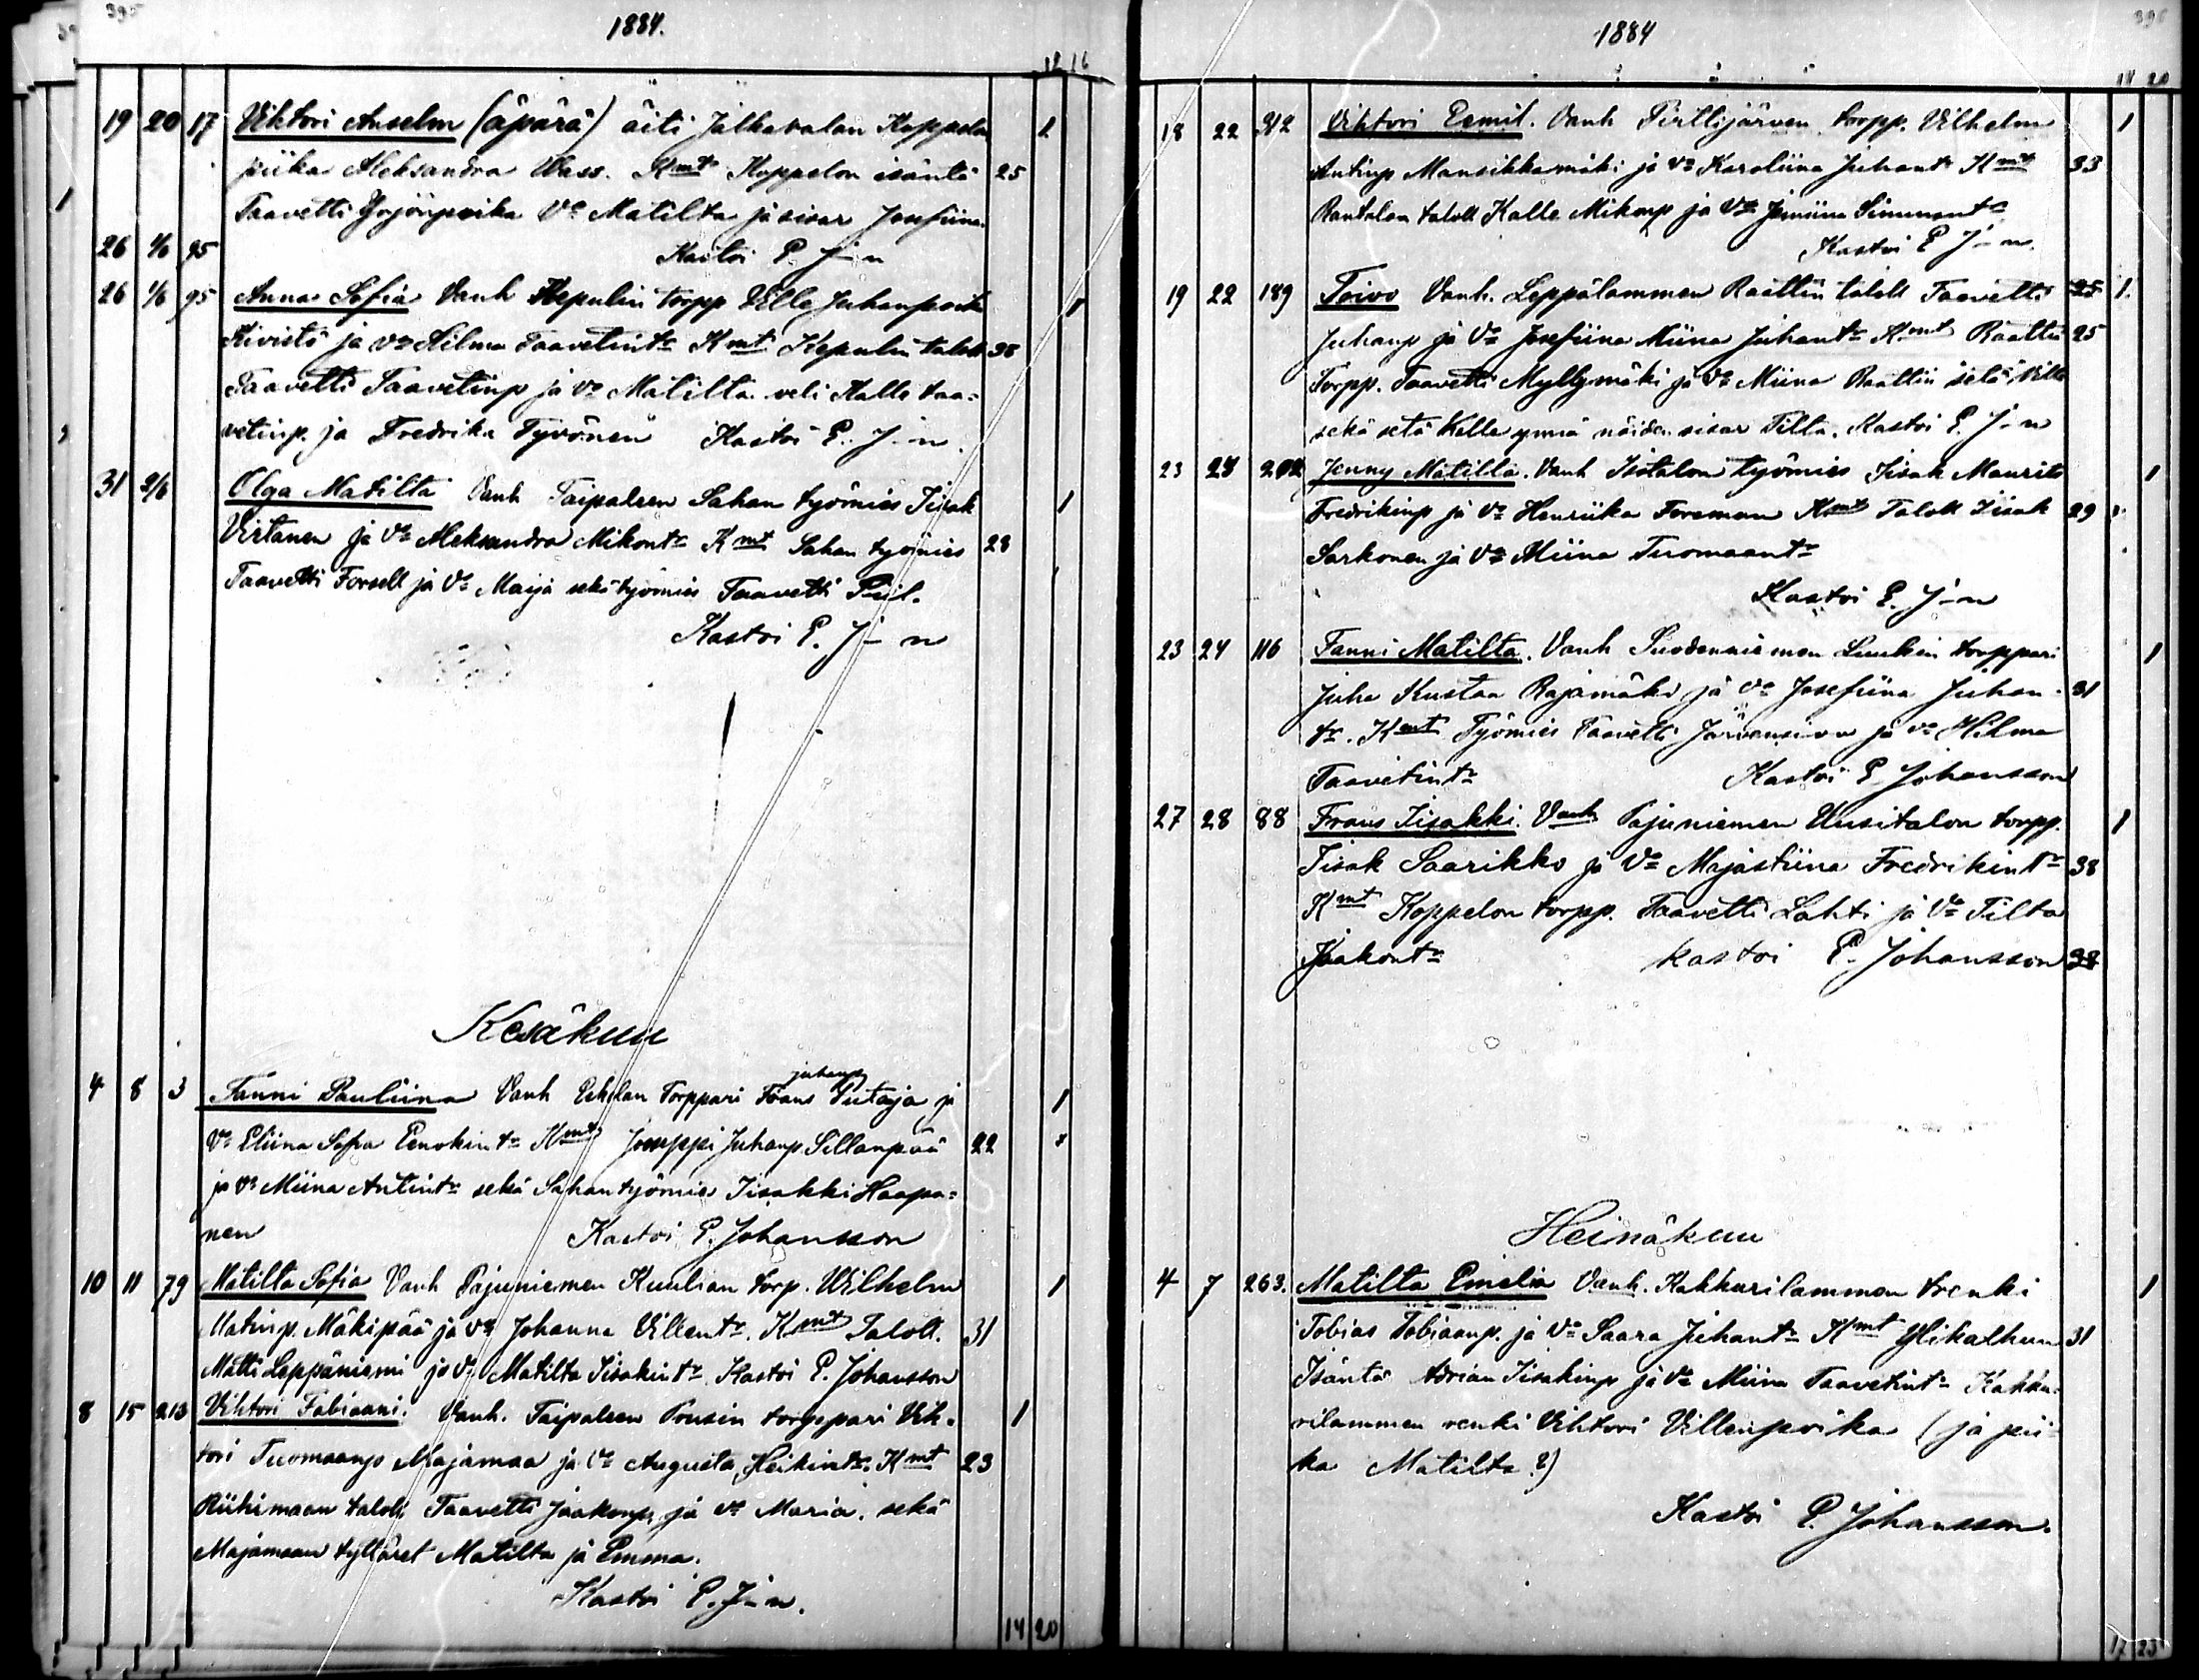 395
1884.
12 16
19 20 17 Viktori Anselm (äpärä) äiti Jälkävalan Koppelon 1
piika Aleksandra Wass. Kmt Koppelon isäntä 25
Taavetti Yrjönpoika Vo Matilta ja sisar Josefiina.
26 1/6 95 Kastoi P. J-n
26 1/6 95 Anna Sofia Vanh Kepulin torpp Ville Juhanpoika 1
Kivistö ja vo Hilma Taavetintr Kmt Kepulin taloll 38
Taavetti Taavetinp ja vo Matilta veli Kalle Taa=
vetinp. ja Fredrika Tyvönen Kastoi P. J-n
31 2/6 Olga Matilta Vanh Taipaleen Sahan työmies Iisak 1
Virtanen ja Vo Aleksandra Mikontr Kmt Sahan työmies 28
Taavetti Forsell ja Vo Maija sekä työmies Taavetti
Kastoi P. J-n
Kesäkuu
juhanp
4 8 3 Fanni Pauliina Vanh Eskolan Torppari Frans Putaja ja 1
Vo Eliina Sofia Eenokintr Kmt Juuppi Juhanp. Sillanpää 22
ja vo Miina Antintr sekä Sahantyömies Iisakki Haapa=
nen Kastoi P. Johansson
10 11 79 Matilta Sofia Vanh Pajuniemen Kuulian torp. Wilhelm 1
Matinp. Mäkipää ja vo Johanna Villentr. Kmt Taloll. 31
Matti Leppäniemi ja Vo Matilta Iisakintr. Kastoi P. Johansson
8 15 213 Vihtori Fabiaani. Vanh. Taipaleen Pousin torppari Vih= 1
tori Tuomaanp Majamaa ja Vo Augusta Heikintr. Kmt 23
Riihimaan taloll Taavetti Jaakonp. ja vo Maria. sekä
Majamaan tyttäret Matilta ja Emma.
Kastoi P. J-n.
14 20
396
1884
14 20
18 22 312 Vihtori Eemil. Vanh Pirttijärven torpp. Vilhelm 1
Antinp Mansikkamäki ja vo Karoliina Juhantr Kmt 33
Rantalan taloll Kalle Mikonp ja Vo Jemiina Simmontr
Kastoi P J-n.
19 22 189 Toivo Vanh. Leppälammen Raittiin taloll Taavetti 25 1.
Juhanp ja Vo Josefiina Miina Juhantr Kmt Raittiin 25
Torpp. Taavetti Myllymäki ja Vo Miina Raittiin setä Ville
sekä setä Kalle ynnä näiden sisar Tilta. Kastoi P. J-n
23 28 202 Jenny Matilta. Vanh Isotalon työmies Iisak Maurits 1
Fredrikinp ja vo Henriika Foreman Kmt Taloll Iisak 29
Sarkonen ja Vo Miina Tuomaantr
Kastoi P. J-n
23 24 116 Fanni Matilta. Vanh Suodenniemen Luukin torppari 1
Juha Kustaa Rajamäki ja vo Josefiina Juhan 31
tr. Kmt Työmies Taavetti Järvensivu ja vo Hilma
Taavetintr Kastoi P. Johansson
27 28 88 Frans Iisakki. Vanh Pajuniemen Uusitalon torpp. 1
Iisak Saarikko ja Vo Majastiina Fredrikintr 38
Kmt Koppelon torpp. Taavetti Lahti ja Vo Tilta
Jaakontr kastoi P. Johansson 38
Heinäkuu
4 7 263. Matilta Emelia Vanh. Kakkurilammen trenki 1
Tobias Tobiaanp. ja Vo Saara Juhantr Kmt Ylikalhun 31
Isäntä Adrian Iisakinp ja Vo Miina Taavetintr Kakku=
rilammen renki Vihtori Villenpoika (ja pii
ka Matilta?)
Kastoi P. Johansson.
17 23